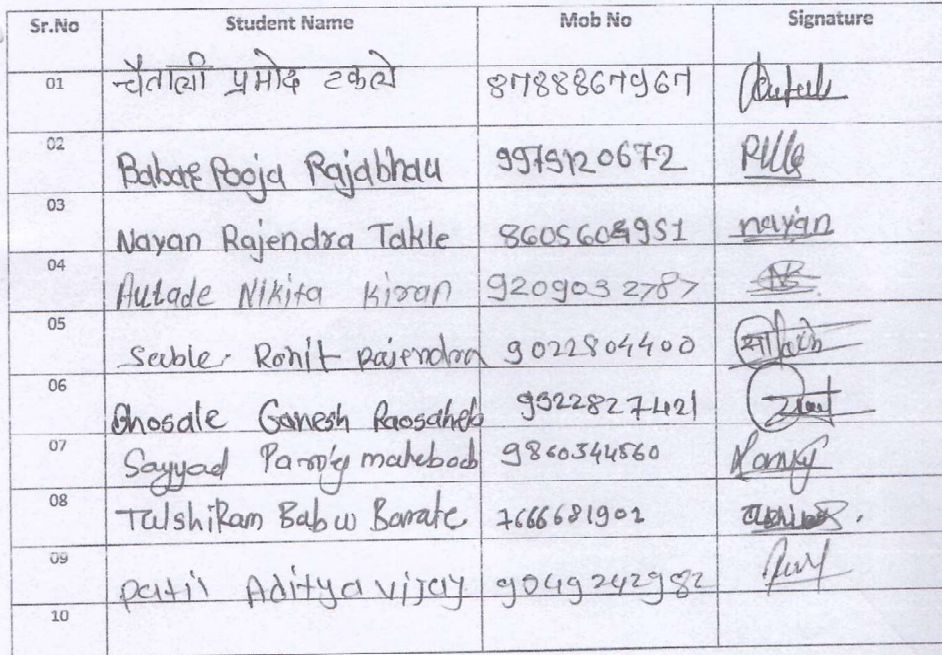 Sr.No Student Name Mob No Signature
01 चैताली प्रमोद टकले 8788867967
02 Babate Pooja Rajabhau 9979120672
03 Nayan Rajendra Takle 8605604951 nayan
04 Autade Nikita Kiran 9209032787
05 Sable Rohit Rajendra 9022804400
06 Bhosale Ganesh Raosaheb 9322827421
07 Sayyad mahebob 9860344560
08 TulshiRam Babu Barate 7666681902
09 Patil Aditya vijay 9049242982
10